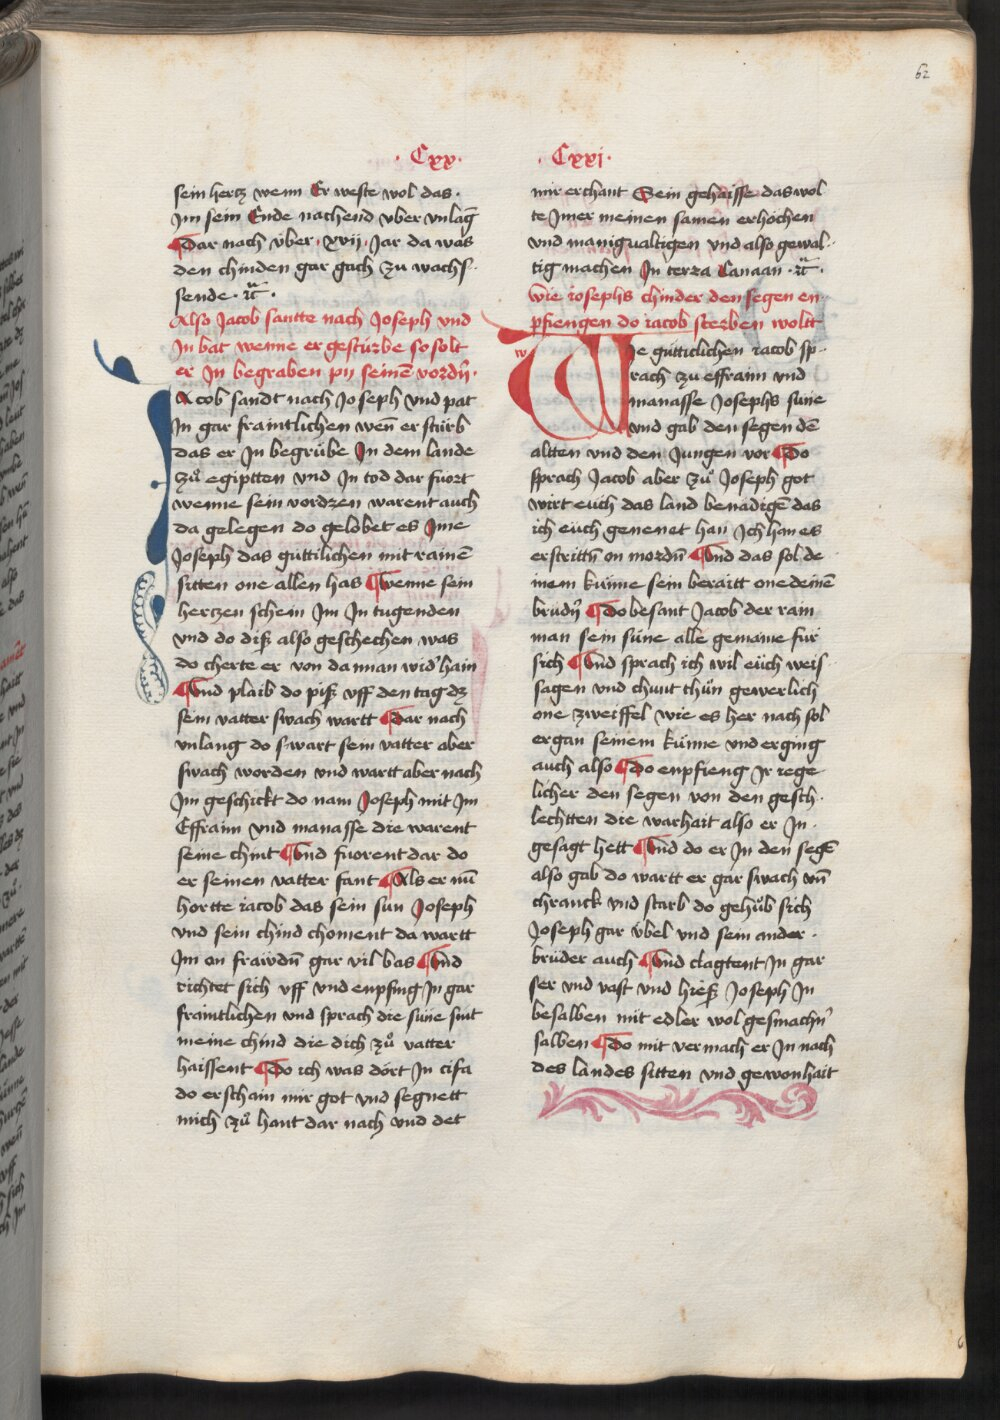 62
· Cxx ·
sein hertz wenn Er weste wol das ·
Jm sein Ende nachend vber vnlag̃
Dar nach vber · xvij · Jar da was
den chinden gar gach zu wachs-
sende · ꝛc̃ ·
Also Jacob santte nach Joseph vnd
Jn bat wenne er gestúrbe so solt
er Jn begraben pij seinẽ vordñ ·
Jacob sandt nach Joseph vnd pat
Jn gar fraintlichen weñ er stúrb
das er Jn begrúbe Jn dem lande
zů egiptten vnd Jn tod dar fuort
wenne sein vordren warent auch
da gelegen do gelobet es Jme
Joseph das gúttilichen mit rainẽ
sitten one allen has Wenne sein
hertzen schein Jm Jn tugenden
vnd do diß also geschechen was
do cherte er von dannan wid' hain
Vnd plaib do piß vff den tag dz
sein vatter swach wartt Dar nach
vnlang do swart sein vatter aber
swach worden vnd wartt aber nach
Jm geschickt do nam Joseph mit Jm
Effraim vnd manasse die warent
seine chint Vnd fuorent dar do
er seinen vatter fant Als er nũ
hortte iacob das sein sun Joseph
vnd sein chind choment da wartt
Jm on frawdñ gar vil bas Vnd
richtet sich vff vnd enpfing Jn gar
fraintlichen vnd sprach die súne sint
meine chind die dich zů vatter
haissent Do ich was dört Jn cisa
do erschain mir got vnd segnett
mich zů hant dar nach vnd det
· Cxxj ·
mir erchant Sein gehaisse das wol
te Jmer meinen samen erhochen
vnd manigualtigen vnd also gewal-
tig machen Jn terza Canaan · ꝛc̃ ·
Wie iosephs chinder den segen en-
pfiengen do iacob sterben woltt
We gútticlichen iacob sp-
rach zu effraim vnd
manasse Josephs sune
vnd gab den segen dẽ
altten vnd den Jungen vor Do
sprach Jacob aber zů Joseph got
wirt euch das land benadigẽ das
ich euch genenat han Jch han es
erstrittñ on mordñ Vnd das sol de
inem kúnne sein beraitt one deinẽ
brudñ Do besant Jacob der rain
man sein súne alle gemaine fúr
sich Vnd sprach ich wil eúch weis-
sagen vnd chunt thún gewerlich
one zweiffel wie es her nach sol
ergan seinem kúnne vnd erging
auch also Do enpfieng Jr iege
licher den segen von den gesch-
lechtten die warhait also er Jn ·
gesagt hett Vnd do er Jn den segẽ
also gab do wartt er gar swach vñ
chranck vnd starb do gehúb sich
Joseph gar vbel vnd sein ander ·
brúder auch Vnd clagtent Jn gar
ser vnd vast vnd hieß Joseph Jn
besalben mit edler wol gesmachñ
salben Do mit vermach er Jn nach
des landes sitten vnd gewonhait